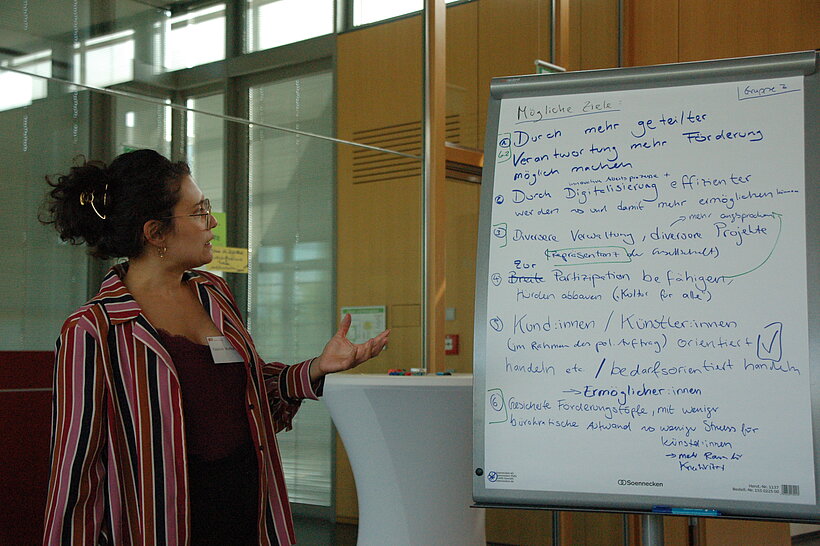 Gruppe 2
Mögliche Ziele:
① Durch mehr geteilter
Verantwortung mehr Förderung
möglich machen
innovative Arbeitsprozesse +
② Durch Digitalisierung effizienter
werden so und damit mehr ermöglichen können
→ mehr ansprechen
③ Diversere Verwaltung, diversere Projekte
(Repräsentant der Gesellschaft)
zur
④ Breite Partizipation befähigen,
Hürden abbauen („Kultur für alle")
⑤ Kund:innen / Künstler:innen
(im Rahmen des pol. Auftrag) orientiert
handeln etc. / bedarfsorientiert handeln
→ Ermöglicher:innen
⑥ Gesicherte Förderungstöpfe, mit weniger
bürokratische Aufwand so weniger Stress für
Künstler:innen
→ mehr Raum für
Kreativität
Soennecken